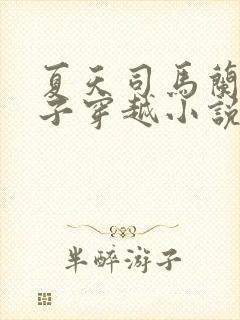 夏天司馬蘭
子穿越小說
半醉游子